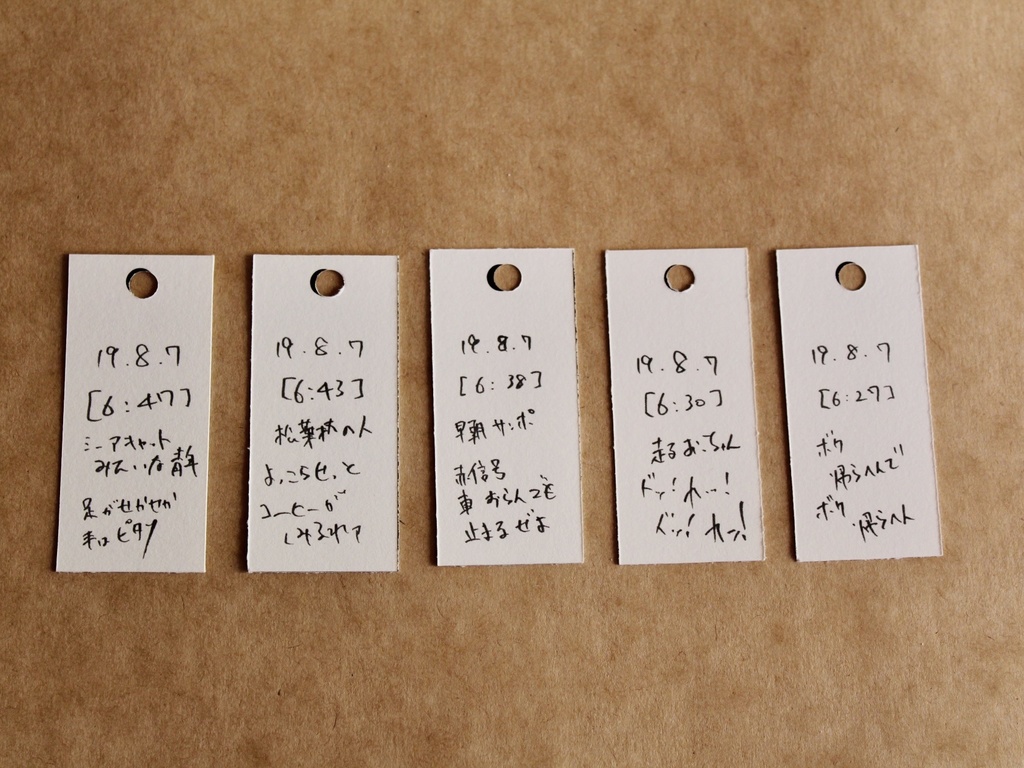 19.8.7
[6:47]
ミーアキャット
みたいな青年
足がせかせか
手はピタッ
19.8.7
[6:43]
松葉杖の人
よっこらせっと
コーヒーが
19.8.7
[6:38]
早朝サンポ
赤信号
車おらんでも
止まるぜよ
19.8.7
[6:30]
走るおっちゃん
19.8.7
[6:27]
ボク
帰らへんで
ボク
帰らへん